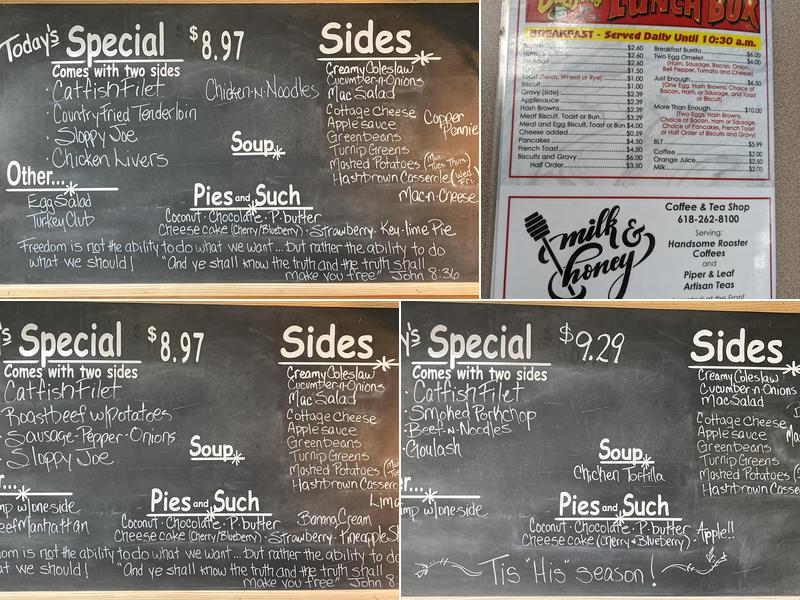 Today's Special $8.97
Comes with two sides
· Catfish Filet
· Country Fried Tenderloin
· Sloppy Joe
· Chicken Livers
Chicken-n-Noodles
Soup
Other...
Egg Salad
Turkey Club
Sides
Creamy Coleslaw
Cucumber-n-Onions
Mac Salad
Cottage Cheese
Applesauce
Greenbeans
Turnip Greens
Mashed Potatoes (Mon. Tues. Thurs)
Hashbrown Casserole (Wed. Fri.)
Copper Pannie
Mac-n-Cheese
Pies and Such
Coconut · Chocolate · P-butter
Cheese cake (Cherry/Blueberry) · Strawberry · Key-lime Pie
Freedom is not the ability to do what we want... but rather the ability to do
what we should! "And ye shall know the truth and the truth shall
make you free" John 8:36
LUNCH BOX
BREAKFAST - Served Daily Until 10:30 a.m.
Bacon $2.60
Ham $2.60
Sausage $2.60
$1.50
Toast (Texas, Wheat or Rye) $1.00
Biscuit $1.00
Gravy (side) $2.39
Applesauce $2.39
Hash Browns $2.39
Meat Biscuit, Toast or Bun $3.29
Meat and Egg Biscuit, Toast or Bun $4.00
Cheese added $0.59
Pancakes $4.50
French Toast $4.50
Biscuits and Gravy $6.00
Half Order $3.50
Breakfast Burrito $6.00
Two Egg Omelet $6.00
(Ham, Sausage, Bacon, Onion,
Bell Pepper, Tomato and Cheese)
Just Enough $6.50
(One Egg, Hash Browns, Choice of
Bacon, Ham, or Sausage, and Toast
or Biscuit)
More Than Enough $10.00
(Two Eggs, Hash Browns,
Choice of Bacon, Ham or Sausage,
Choice of Pancakes, French Toast
or Half Order of Biscuits and Gravy)
BLT $5.99
Coffee $2.00
Orange Juice $2.50
Milk $2.00
milk &
honey
Coffee & Tea Shop
618-262-8100
Serving:
Handsome Rooster
Coffees
and
Piper & Leaf
Artisan Teas
Located at the Front
's Special $8.97
Comes with two sides
Catfish Filet
· Roastbeef w/Potatoes
· Sausage-Pepper-Onions
· Sloppy Joe
Soup
r...
mp w/one side
eef Manhattan
Sides
Creamy Coleslaw
Cucumber-n-Onions
Mac Salad
Cottage Cheese
Applesauce
Greenbeans
Turnip Greens
Mashed Potatoes
Hashbrown Cassero
Lima
Pies and Such
Coconut · Chocolate · P-butter
Banana Cream
Cheese cake (Cherry/Blueberry) · Strawberry · Pineapple
om is not the ability to do what we want... but rather the ability to do
at we should! "And ye shall know the truth and the truth shall
make you free" John 8:
y's Special $9.29
Comes with two sides
· Catfish Filet
· Smoked Porkchop
· Beef-N-Noodles
· Goulash
Soup
Chicken Tortilla
mp w/one side
Sides
Creamy Coleslaw
Cucumber-n-Onions
Mac Salad
Cottage Cheese
Applesauce
Greenbeans
Turnip Greens
Mashed Potatoes
Hashbrown Casser
Pies and Such
Coconut · Chocolate · P-butter · Apple!!
Cheese cake (Cherry & Blueberry)
Tis "His" season!